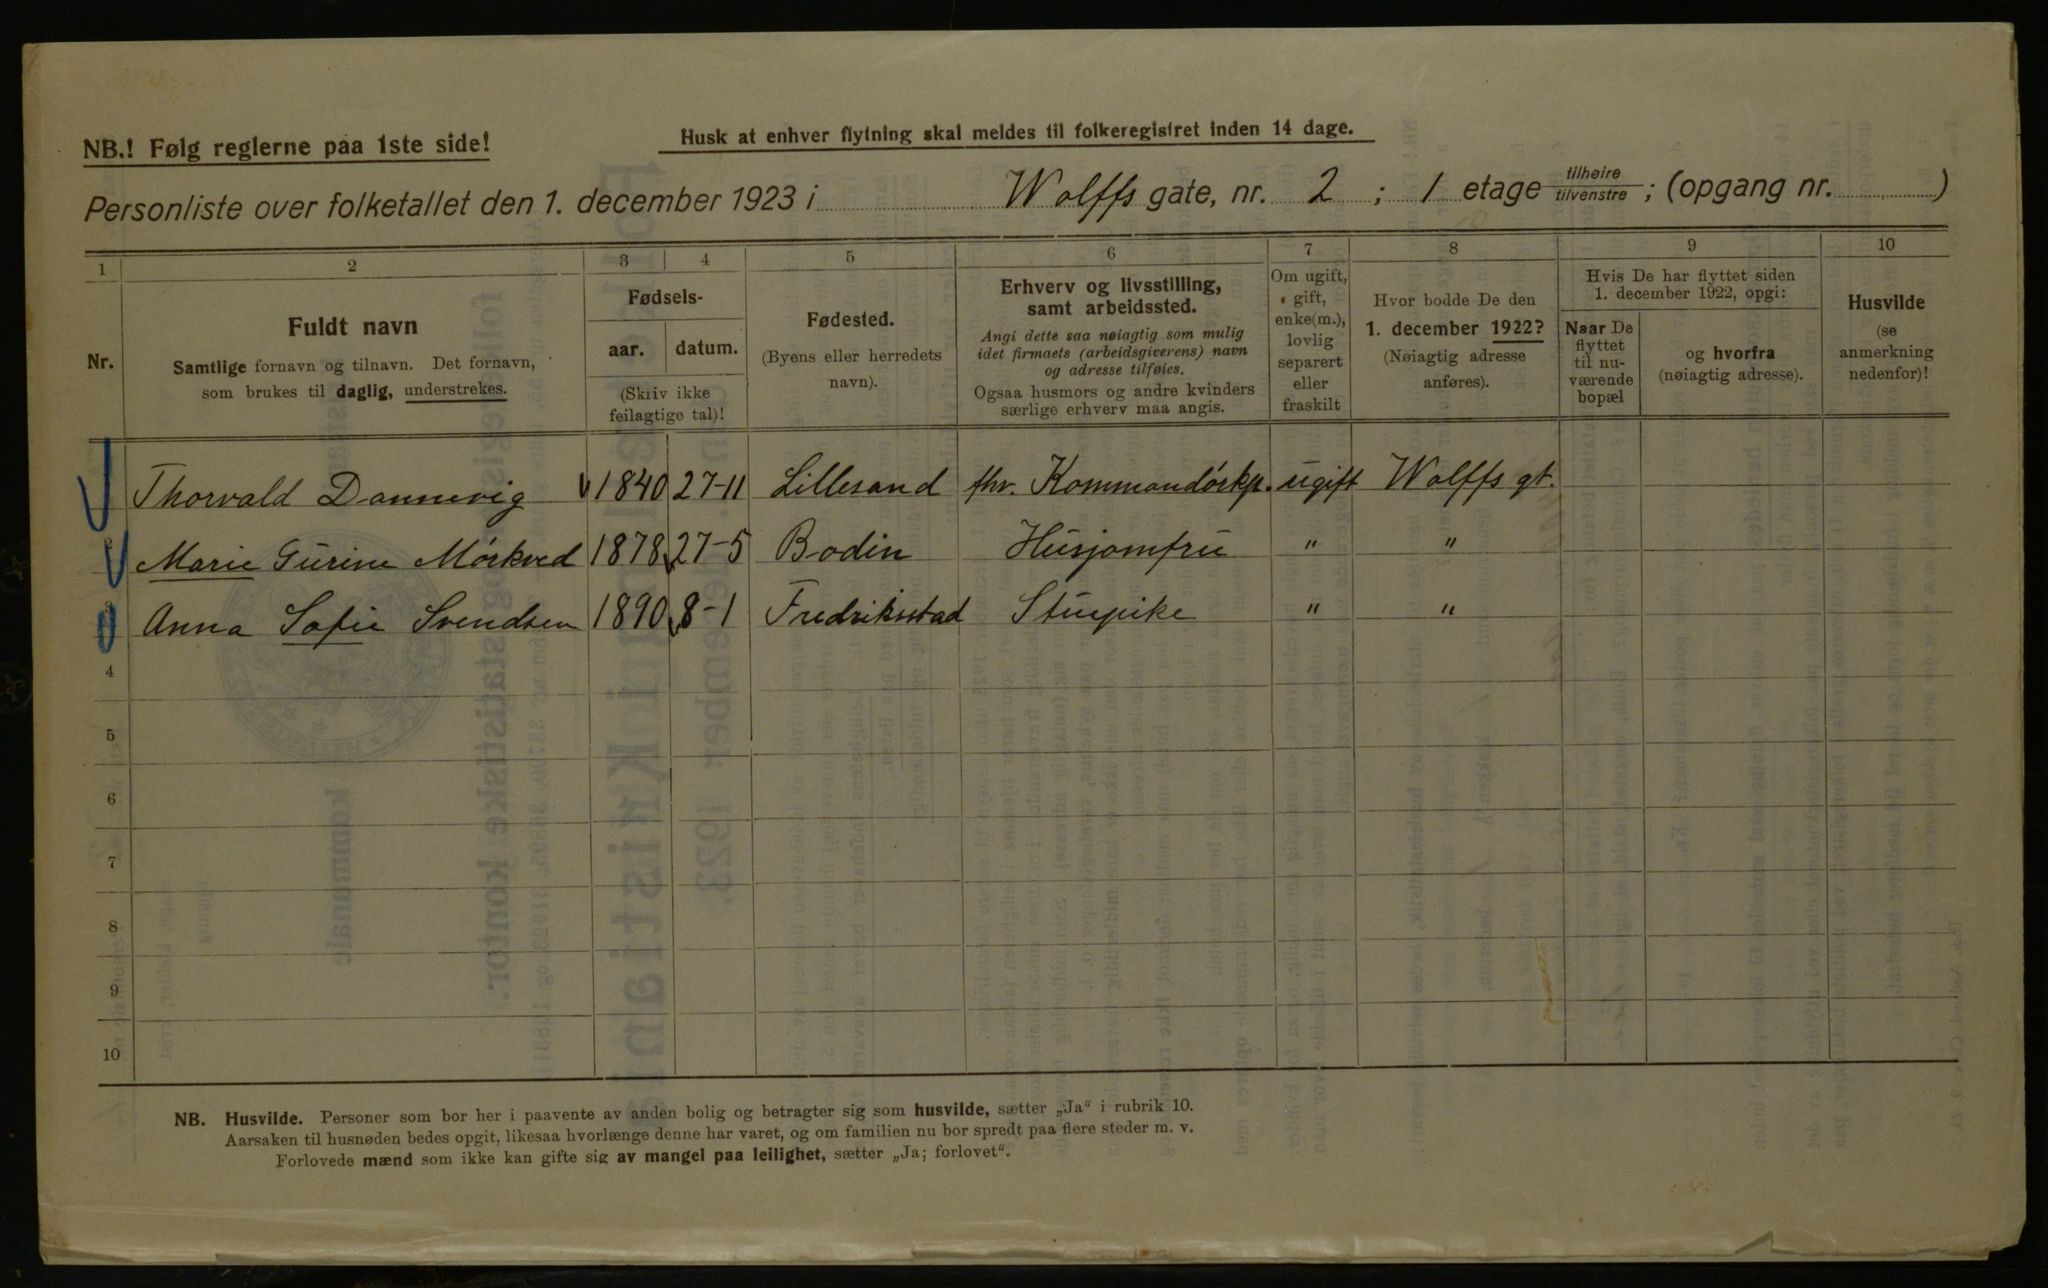 NB.! Følg reglerne paa 1ste side!
Husk at enhver flytning skal meldes til folkeregistret inden 14 dage.
Personliste over folketallet den 1. december 1923 i Wolffs gate, nr. 2 ; 1 etage tilhøire tilvenstre ; (opgang nr. )
1 2 3 4 5 6 7 8 9 10
Nr.
Fuldt navn
Samtlige fornavn og tilnavn. Det fornavn,
som brukes til daglig, understrekes.
Fødsels-
aar. datum.
(Skriv ikke
feilagtige tal)!
Fødested.
(Byens eller herredets
navn).
Erhverv og livsstilling,
samt arbeidssted.
Angi dette saa nøiagtig som mulig
idet firmaets (arbeidsgiverens) navn
og adresse tilføies.
Ogsaa husmors og andre kvinders
særlige erhverv maa angis.
Om ugift,
gift,
enke(m.),
lovlig
separert
eller
fraskilt
Hvor bodde De den
1. december 1922?
(Nøiagtig adresse
anføres).
Hvis De har flyttet siden
1. december 1922, opgi:
Naar De
flyttet
til nu-
værende
bopæl
og hvorfra
(nøiagtig adresse).
Husvilde
(se
anmerkning
nedenfor)!
Thorvald Dannevig 1840 27-11 Lillesand fhv. Kommandørkp. ugift Wolffs gt.
Marie Gurine Mørkved 1878 27-5 Bodin Husjomfru " "
Anna Sofie Svendsen 1890 8-1 Fredriksstad Stuepike " "
4
5
6
7
8
9
10
NB. Husvilde. Personer som bor her i paavente av anden bolig og betragter sig som husvilde, sætter „Ja" i rubrik 10.
Aarsaken til husnøden bedes opgit, likesaa hvorlænge denne har varet, og om familien nu bor spredt paa flere steder m. v.
Forlovede mænd som ikke kan gifte sig av mangel paa leilighet, sætter „Ja; forlovet".